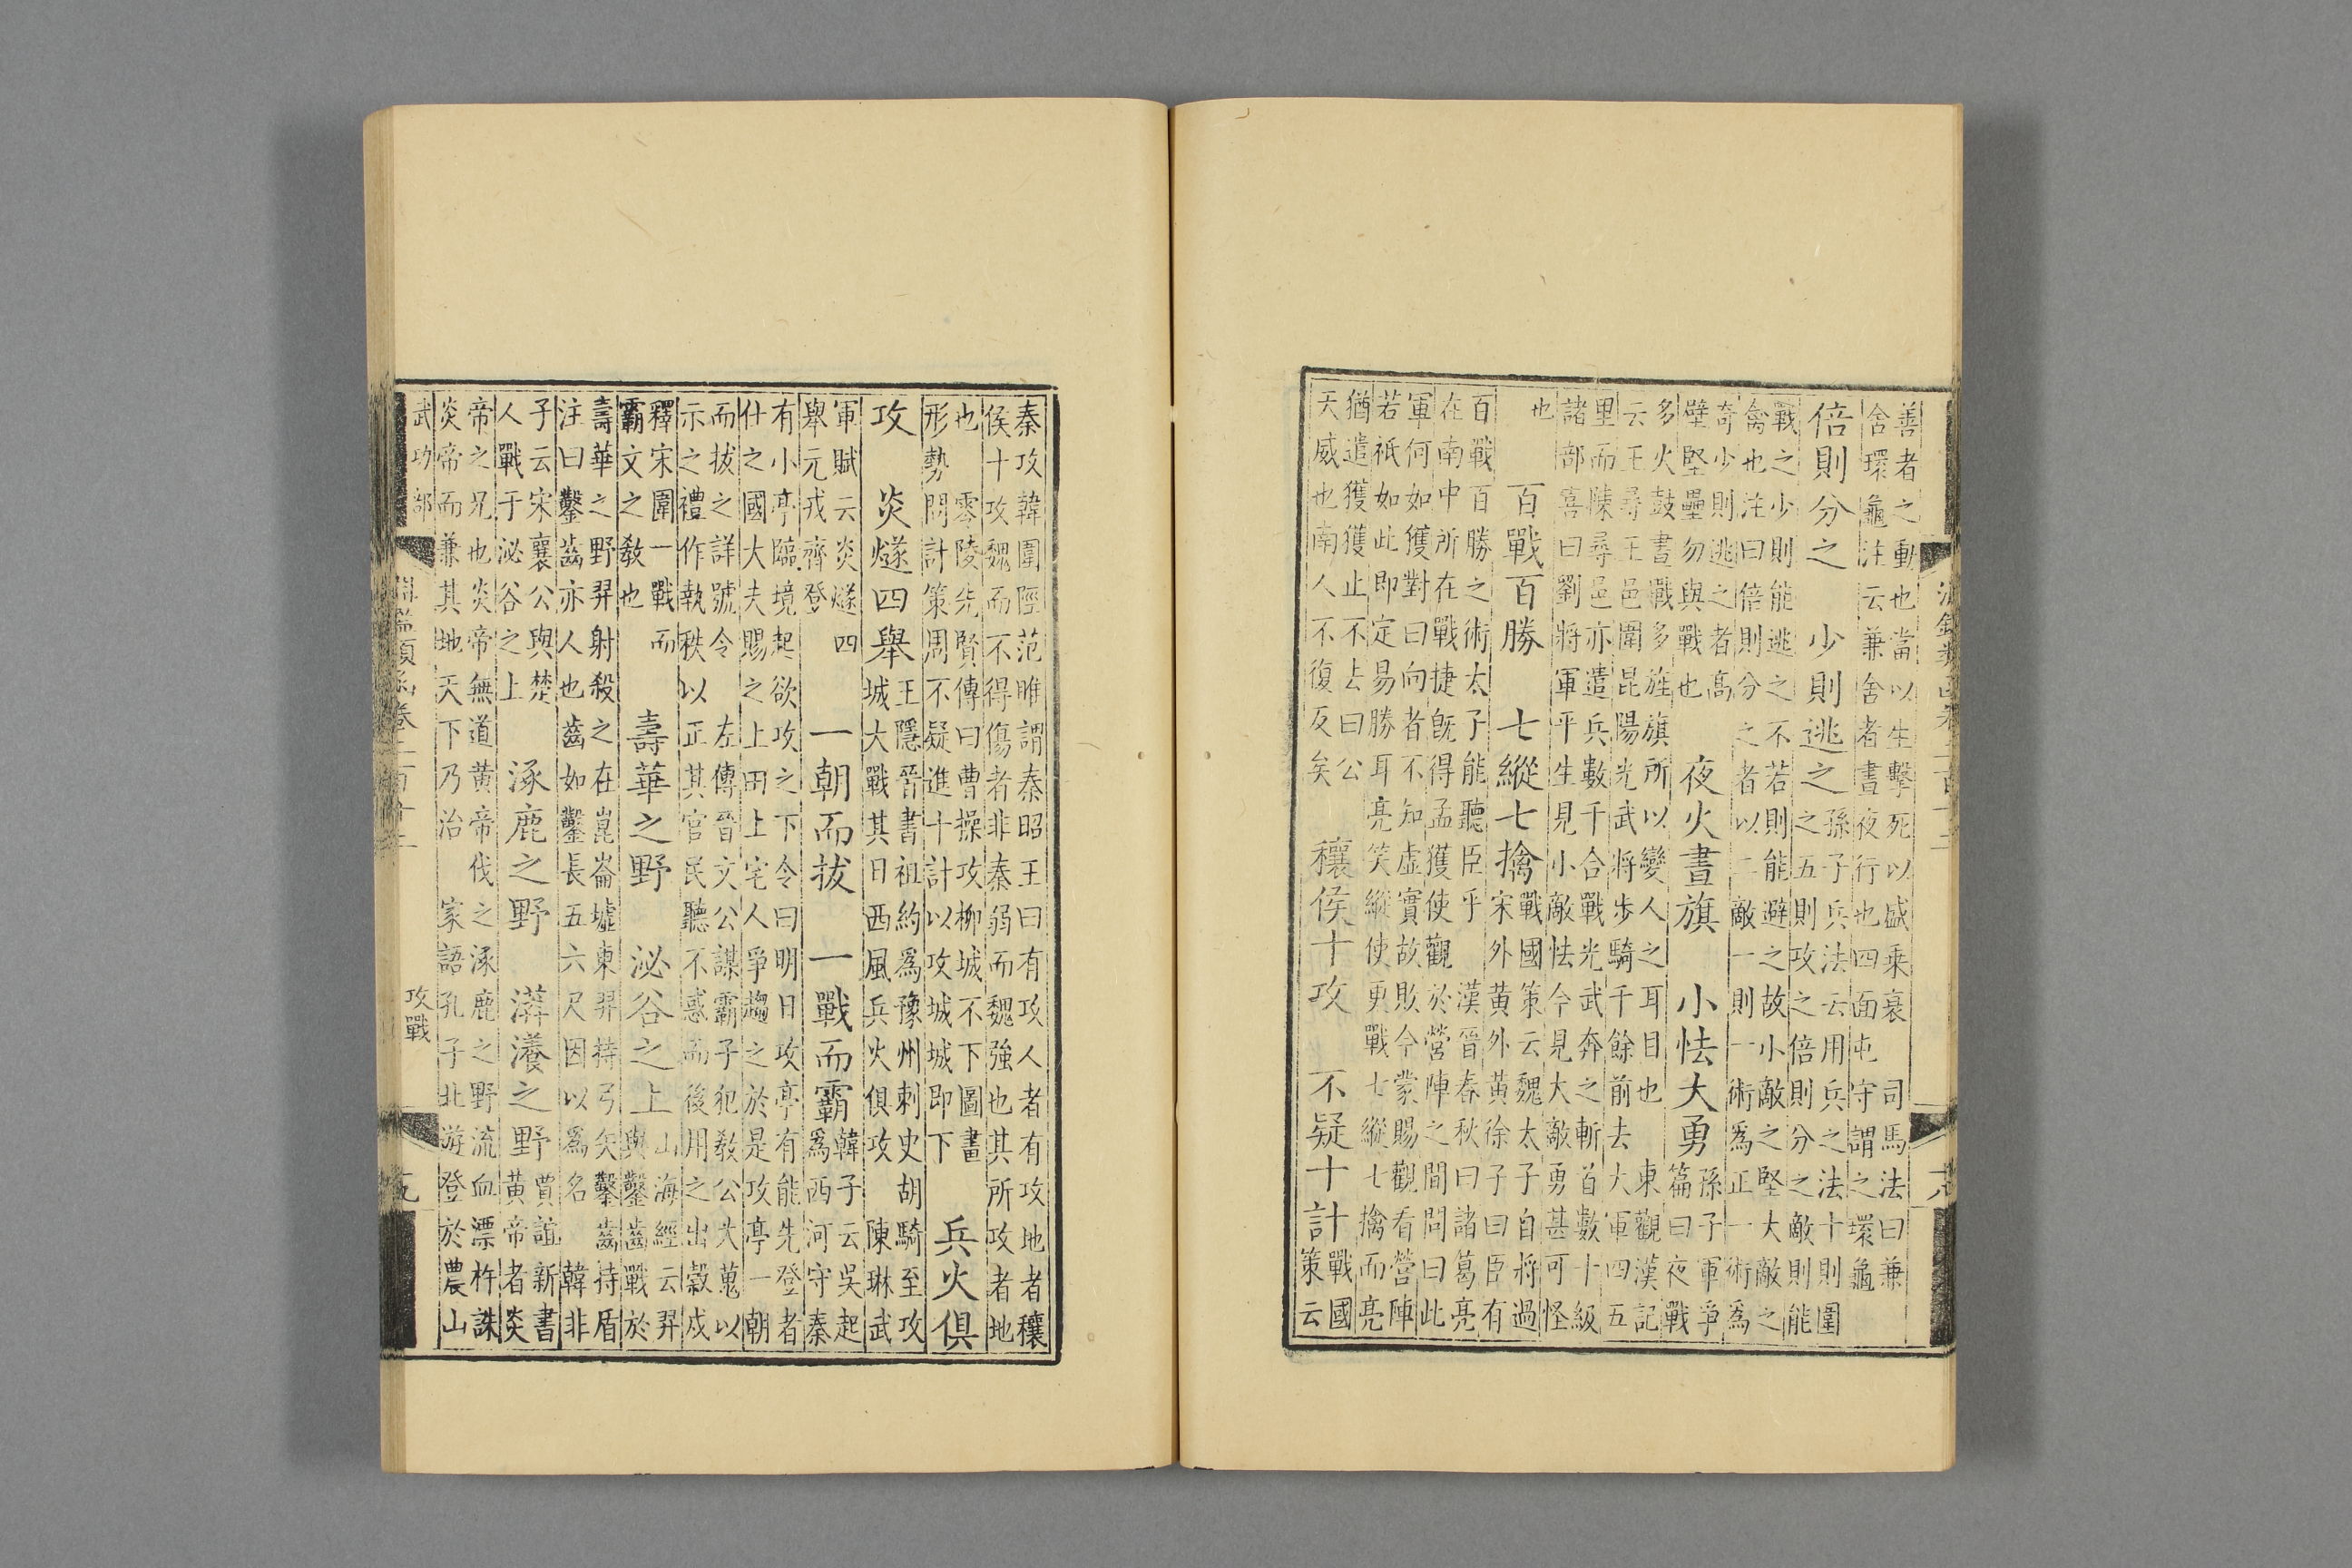 善者之動也當以生擊死以盛乗衰　司馬法曰兼
舍環龜注云兼舍者晝夜行也四面屯守謂之環龜
倍則分之　少則逃之
孫子兵法云用兵之法十則圍
之五則攻之倍則分之敵則能
戰之少則能逃之不若則能避之故小敵之堅大敵之
禽也注曰倍則分之者以二敵一則一術爲正一術爲
奇少則逃之者高
壁堅壘勿與戰也
夜火晝旗　小怯大勇
孫子軍爭
篇曰夜戰
多火鼓晝戰多旌旗所以變人之耳目也　東觀漢記
云王尋王邑圍昆陽光武將歩騎千餘前去大軍四五
里而陳尋邑亦遣兵數千合戰光武奔之斬首數十級
諸部喜曰劉將軍平生見小敵怯今見大敵勇甚可怪
也
百戰百勝　七縱七擒
戰國策云魏太子自將過
宋外黃外黃徐子曰臣有
百戰百勝之術太子能聽臣乎　漢晉春秋曰諸葛亮
在南中所在戰捷旣得孟獲使觀於營陣之間問曰此
軍何如獲對曰向者不知虛實故敗今蒙賜觀看營陣
若祇如此即定易勝耳亮笑縱使更戰七縱七擒而亮
猶遣獲獲止不去曰公
天威也南人不復反矣
穰侯十攻　不疑十計
戰國
策云
秦攻韓圍陘范雎謂秦昭王曰有攻人者有攻地者穰
侯十攻魏而不得傷者非秦弱而魏強也其所攻者地
也　零陵先賢傳曰曹操攻柳城不下圖畫
形勢問計策周不疑進十計以攻城城即下
兵火俱
攻　炎燧四舉
王隱晉書祖約爲豫州刺史胡騎至攻
城大戰其日西風兵火俱攻　陳琳武
軍賦云炎燧四
舉元戎齊登
一朝而拔　一戰而霸
韓子云吳起
爲西河守秦
有小亭臨境起欲攻之下令曰明日攻亭有能先登者
仕之國大夫賜之上田上宅人爭趨之於是攻亭一朝
而拔之詳號令　左傳晉文公謀霸子犯教公大蒐以
示之禮作執秩以正其官民聽不惑而後用之出穀戍
釋宋圍一戰而
霸文之教也
壽華之野　泌谷之上
山海經云羿
與鑿齒戰於
壽華之野羿射殺之在崑崙墟東羿持弓矢鑿齒持盾
注曰鑿齒亦人也齒如鑿長五六尺因以爲名　韓非
子云宋襄公與楚
人戰于泌谷之上
涿鹿之野　瀁之野
賈誼新書
黃帝者炎
帝之兄也炎帝無道黃帝伐之涿鹿之野流血漂杵誅
炎帝而兼其地天下乃治　家語孔子北游登於農山
武功部
攻戰